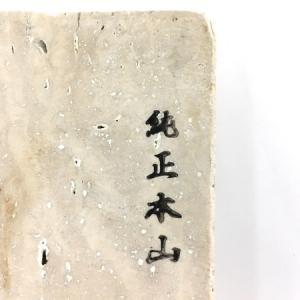 純正本山